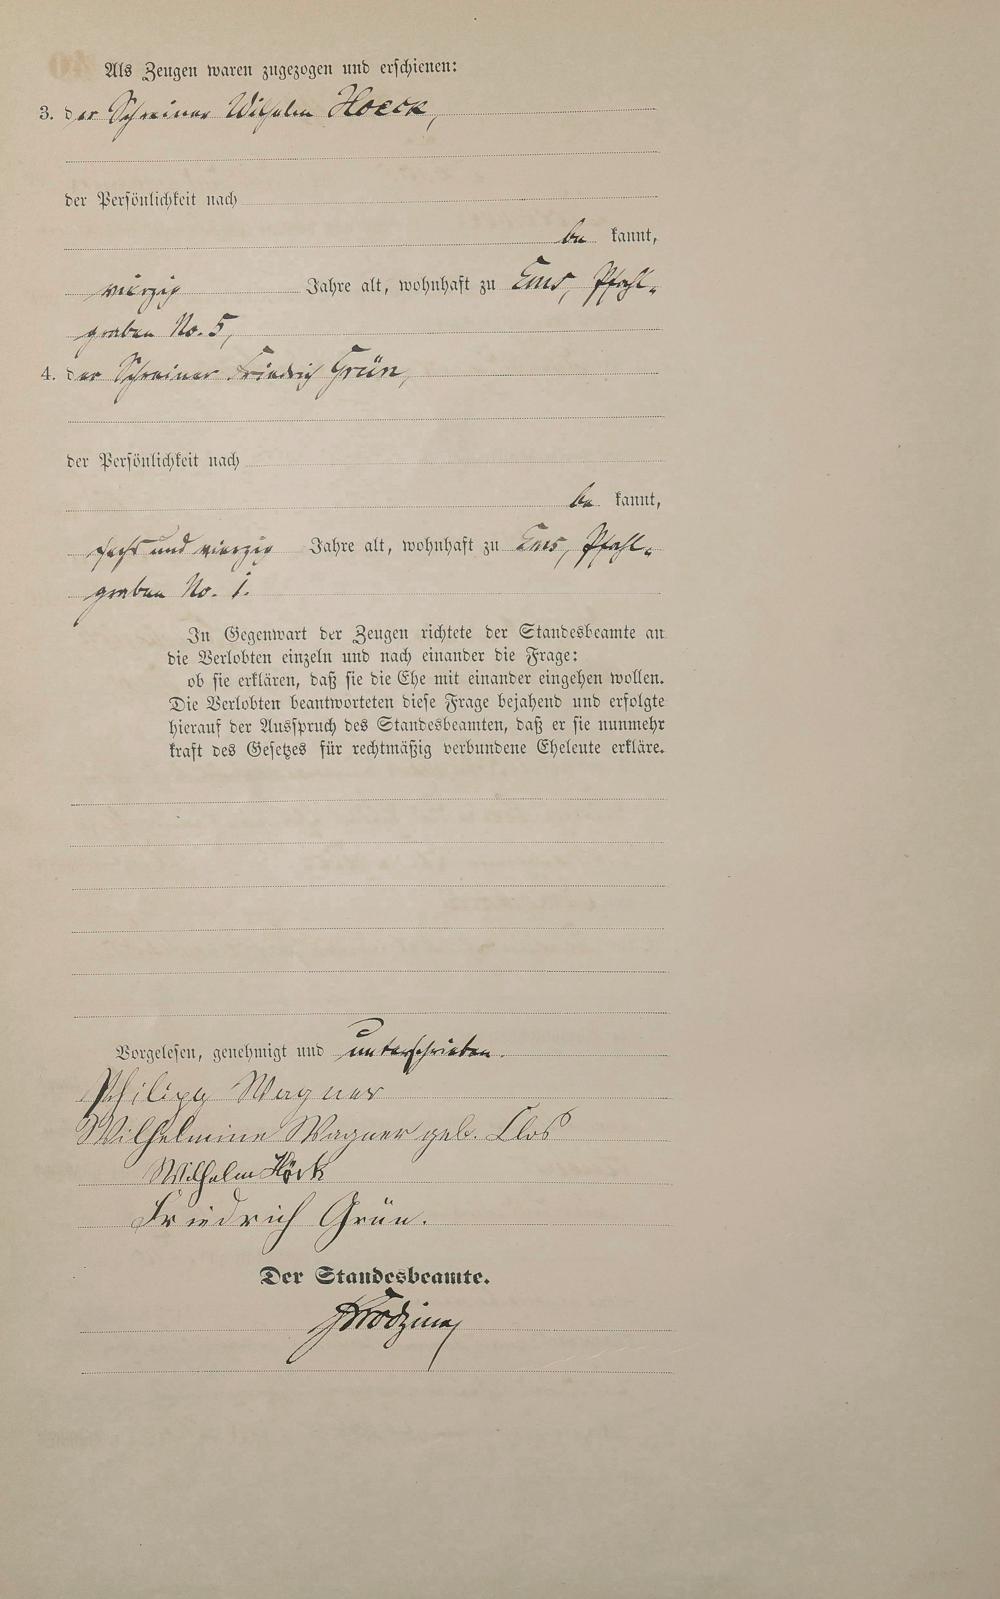 Als Zeugen waren zugezogen und erschienen:
3. der Schreiner Wilhelm Hoeck,
der Persönlichkeit nach
be kannt,
vierzig Jahre alt, wohnhaft zu Ems, Pfahl-
graben No. 5,
4. der Schreiner Friedrich Grün,
der Persönlichkeit nach
be kannt,
sechs und vierzig Jahre alt, wohnhaft zu Ems, Pfahl-
graben No. 1.
In Gegenwart der Zeugen richtete der Standesbeamte an
die Verlobten einzeln und nach einander die Frage:
ob sie erklären, daß sie die Ehe mit einander eingehen wollen.
Die Verlobten beantworteten diese Frage bejahend und erfolgte
hierauf der Ausspruch des Standesbeamten, daß er sie nunmehr
kraft des Gesetzes für rechtmäßig verbundene Eheleute erkläre.
Vorgelesen, genehmigt und unterschrieben.
Philipp Wagner
Wilhelmine Wagner geb. Clos
Wilhelm Höck
Friedrich Grün.
Der Standesbeamte.